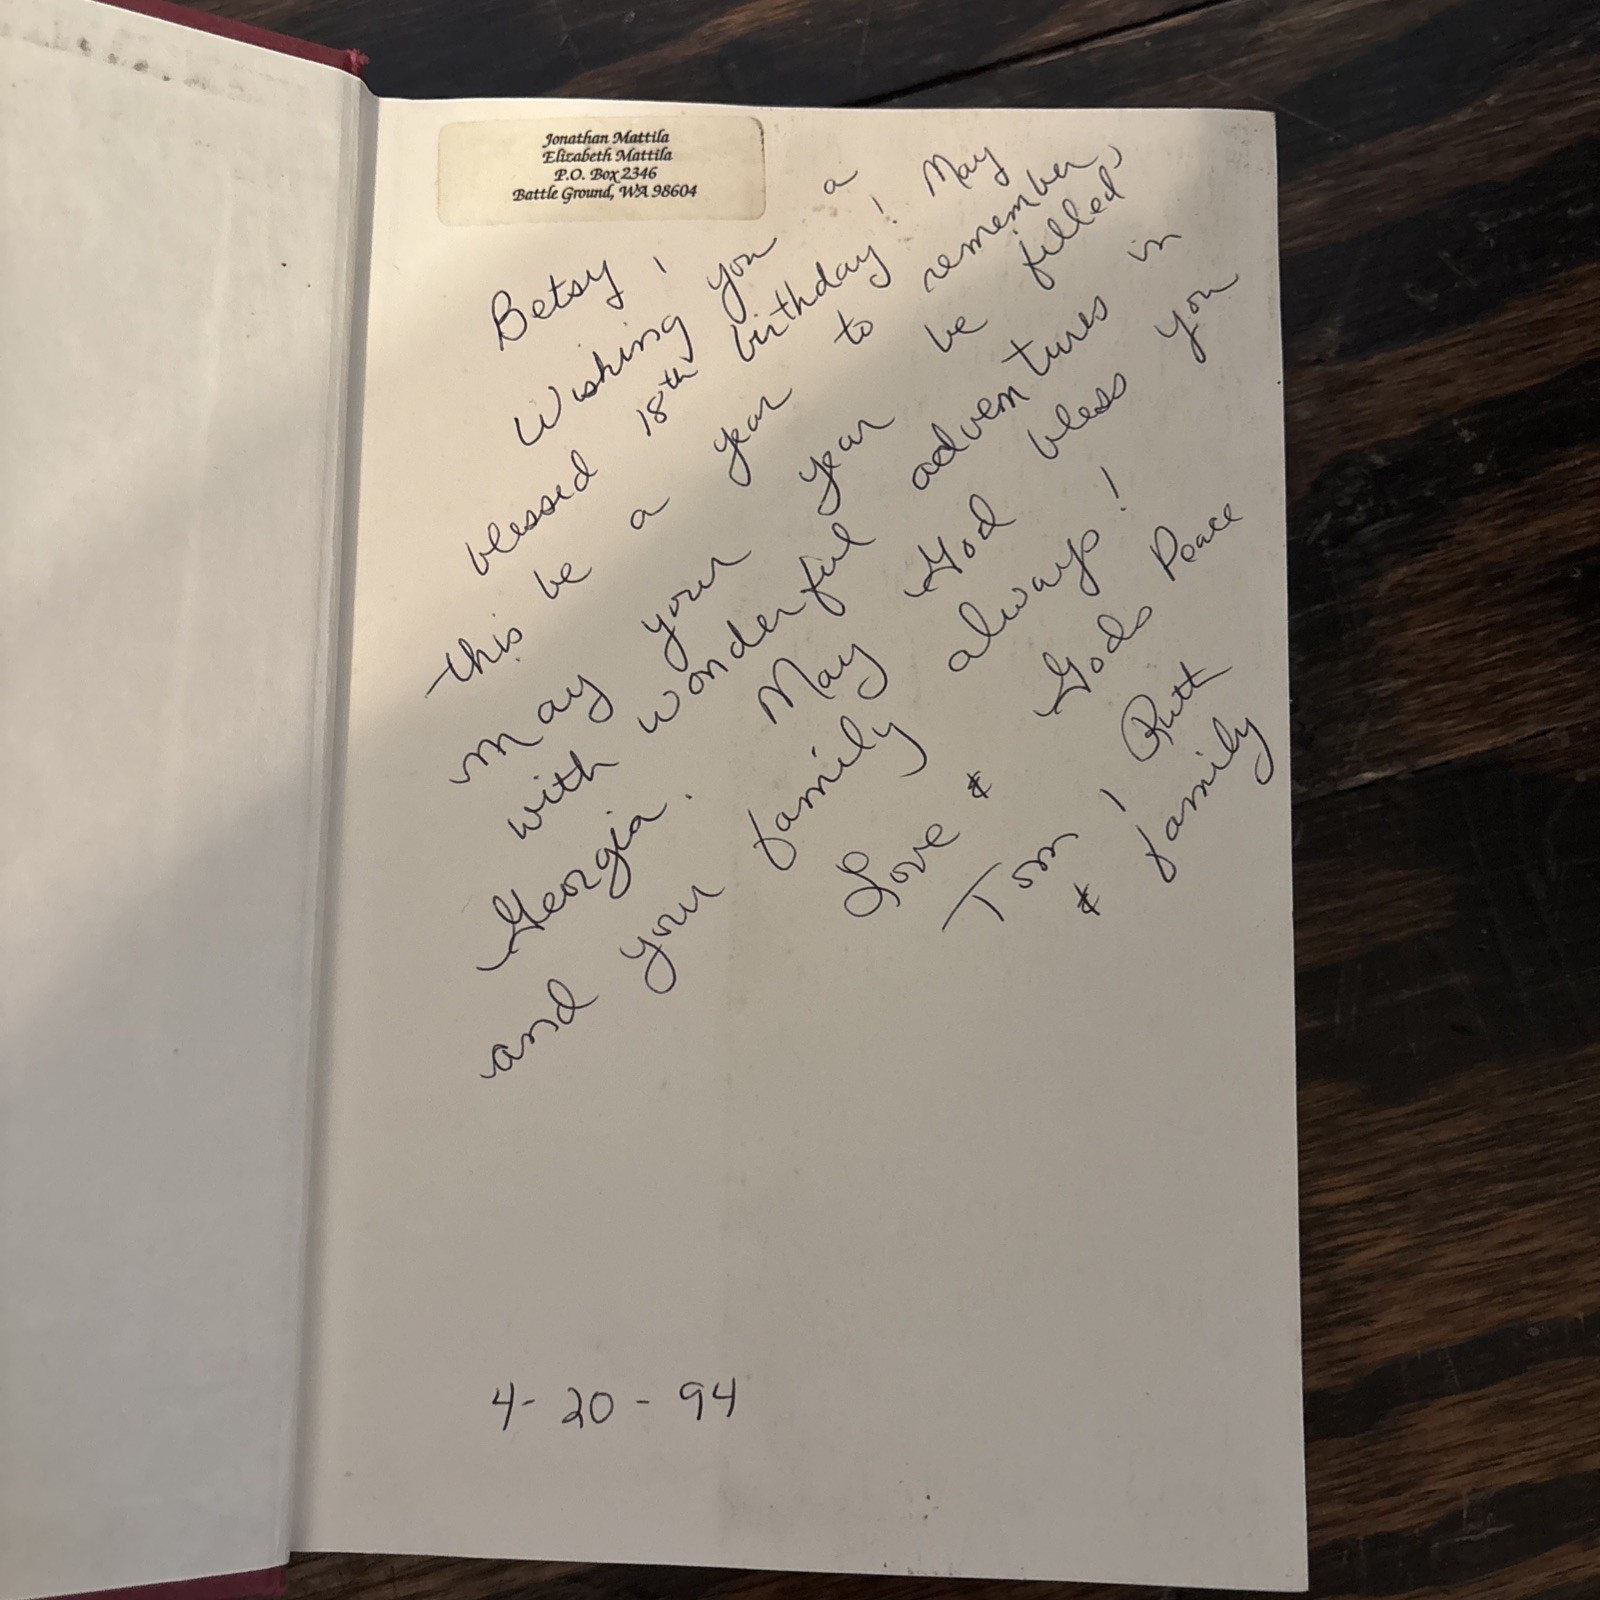 Jonathan Mattila
Elizabeth Mattila
P.O. Box 2346
Battle Ground, WA 98604
Betsy,
Wishing you a
blessed 18th birthday! May
this be a year to remember,
may your year be filled
with wonderful adventures in
Georgia. May God bless you
and your family always!
Love & Gods Peace
Tom, Ruth
& family
4-20-94